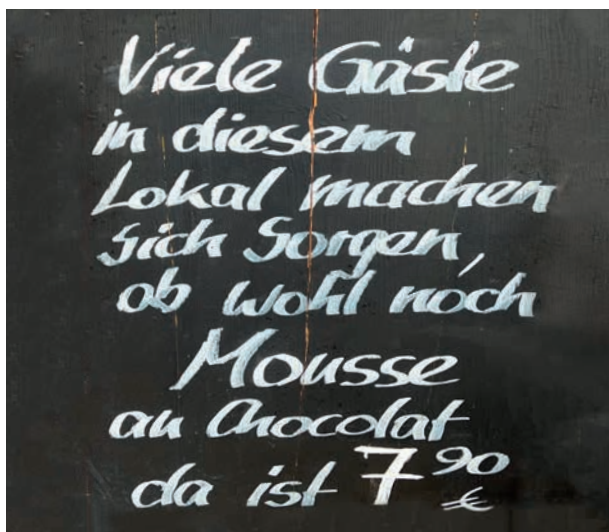 Viele Gäste
in diesem
Lokal machen
sich Sorgen,
ob wohl noch
Mousse
au Chocolat
da ist 7 90 €